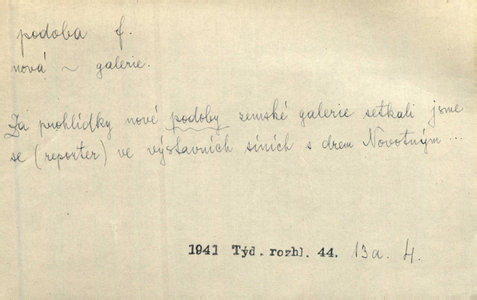 podoba f.
nová ~ galerie.
Za prohlídky nové podoby zemské galerie setkali jsme
se (reporter) ve výstavních síních s drem Novotným ...
1941 Týd. rozhl. 44. 13a. 4.